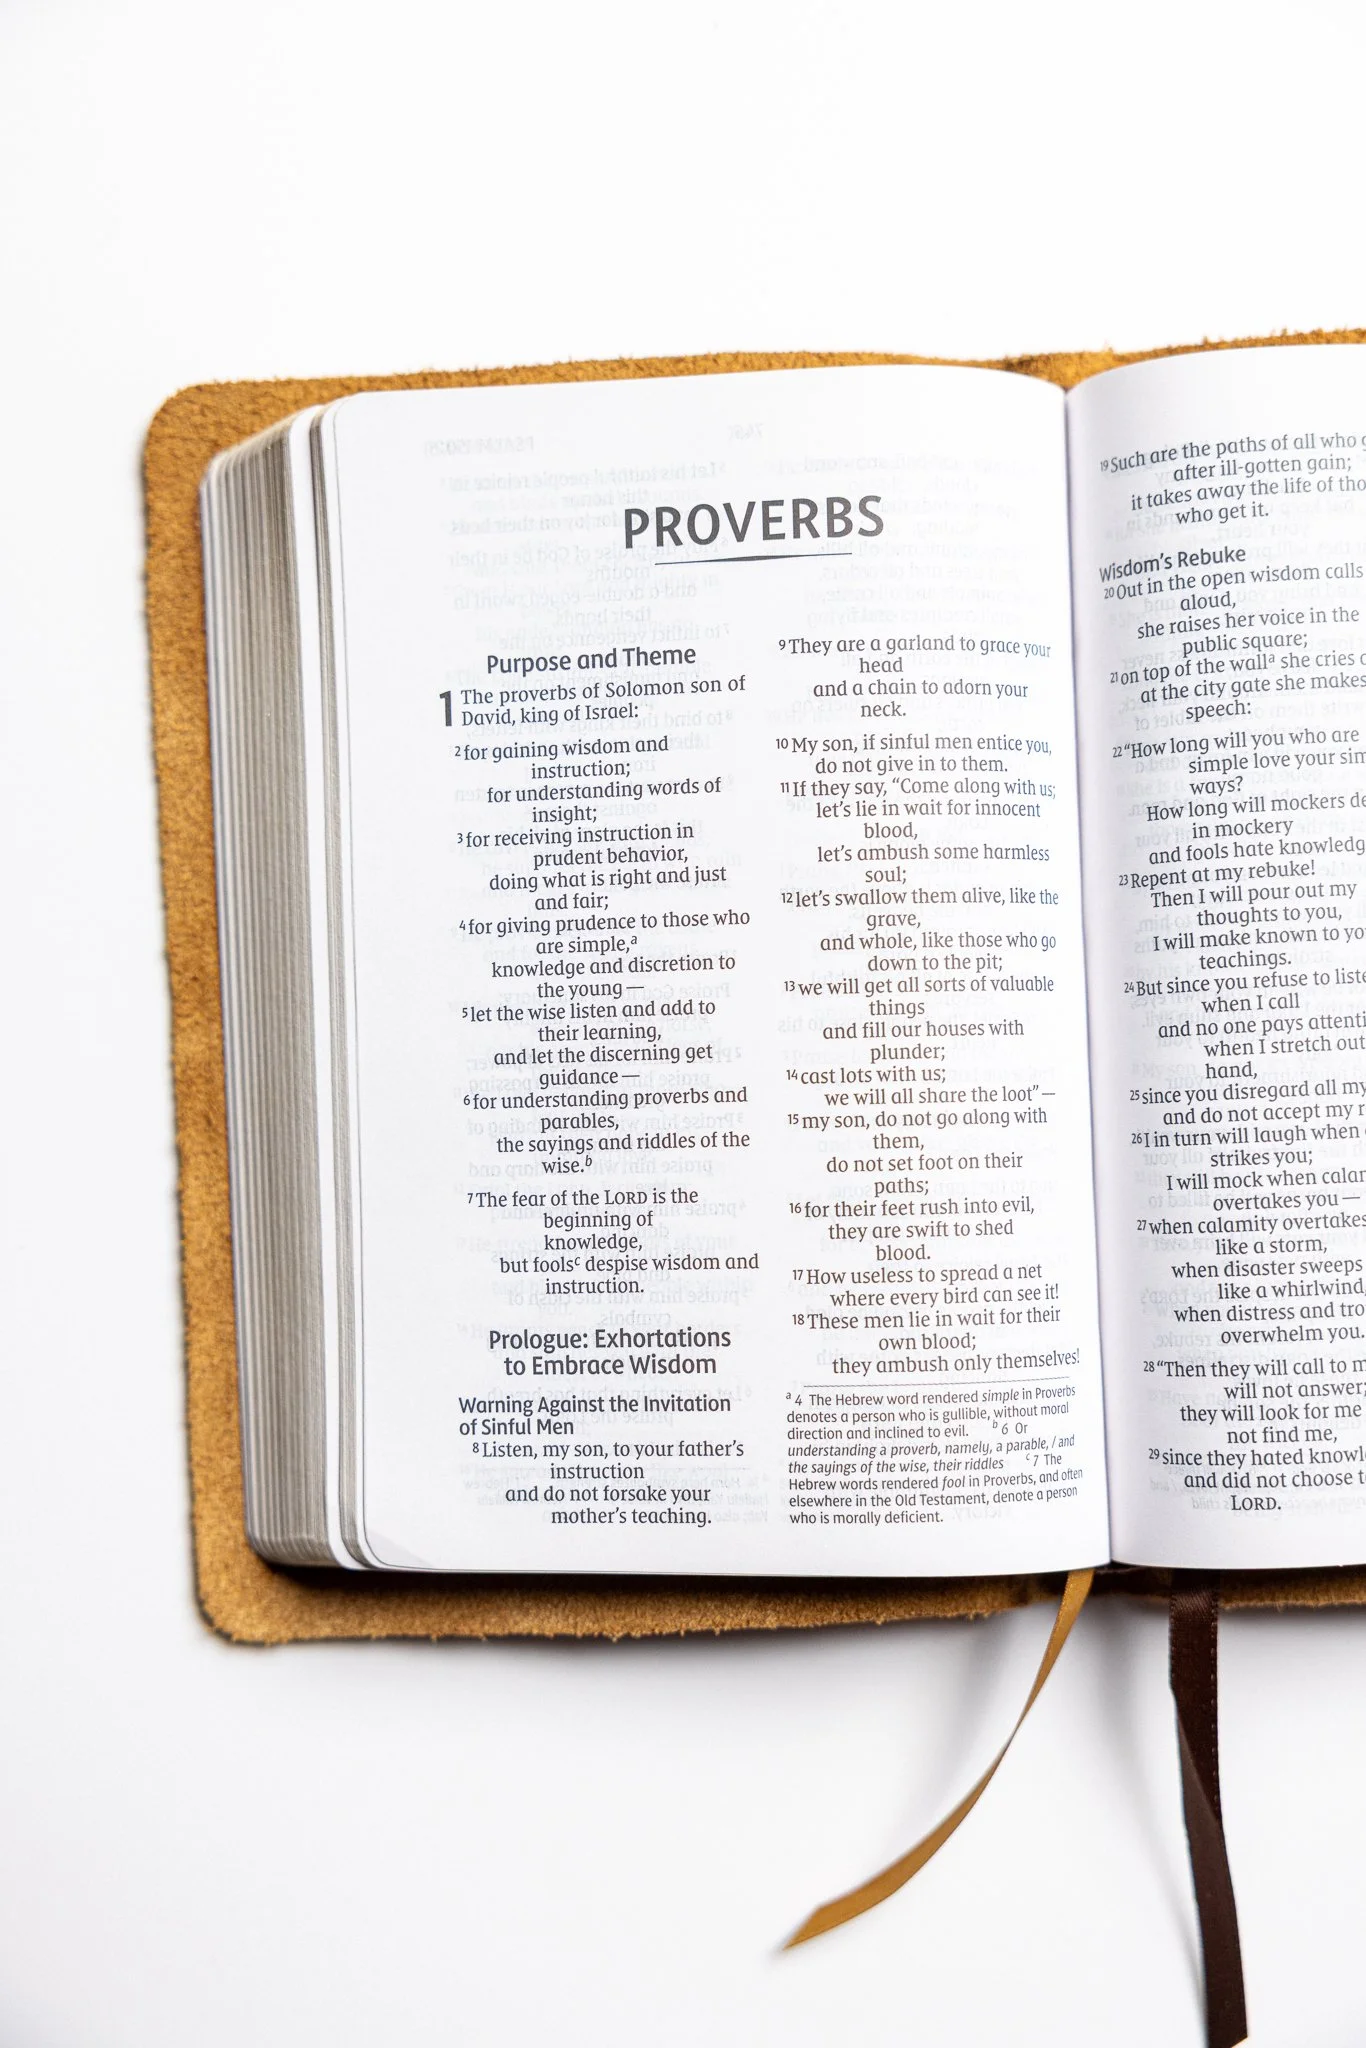 PROVERBS
Purpose and Theme
1 The proverbs of Solomon son of
David, king of Israel:
2 for gaining wisdom and
instruction;
for understanding words of
insight;
3 for receiving instruction in
prudent behavior,
doing what is right and just
and fair;
4 for giving prudence to those who
are simple,a
knowledge and discretion to
the young —
5 let the wise listen and add to
their learning,
and let the discerning get
guidance —
6 for understanding proverbs and
parables,
the sayings and riddles of the
wise.b
7 The fear of the LORD is the
beginning of
knowledge,
but foolsc despise wisdom and
instruction.
Prologue: Exhortations
to Embrace Wisdom
Warning Against the Invitation
of Sinful Men
8 Listen, my son, to your father's
instruction
and do not forsake your
mother's teaching.
9 They are a garland to grace your
head
and a chain to adorn your
neck.
10 My son, if sinful men entice you,
do not give in to them.
11 If they say, “Come along with us;
let's lie in wait for innocent
blood,
let's ambush some harmless
soul;
12 let's swallow them alive, like the
grave,
and whole, like those who go
down to the pit;
13 we will get all sorts of valuable
things
and fill our houses with
plunder;
14 cast lots with us;
we will all share the loot” —
15 my son, do not go along with
them,
do not set foot on their
paths;
16 for their feet rush into evil,
they are swift to shed
blood.
17 How useless to spread a net
where every bird can see it!
18 These men lie in wait for their
own blood;
they ambush only themselves!
a 4 The Hebrew word rendered simple in Proverbs
denotes a person who is gullible, without moral
direction and inclined to evil. b 6 Or
understanding a proverb, namely, a parable, / and
the sayings of the wise, their riddles c 7 The
Hebrew words rendered fool in Proverbs, and often
elsewhere in the Old Testament, denote a person
who is morally deficient.
19 Such are the paths of all who
after ill-gotten gain;
it takes away the life of
who get it.
Wisdom's Rebuke
20 Out in the open wisdom calls
aloud,
she raises her voice in the
public square;
21 on top of the walla she cries
at the city gate she makes
speech:
22 “How long will you who are
simple love your
ways?
How long will mockers
in mockery
and fools hate
23 Repent at my rebuke!
Then I will pour out my
thoughts to you,
I will make known to
teachings.
24 But since you refuse to
when I call
and no one pays
when I stretch out
hand,
25 since you disregard all my
and do not accept my
26 I in turn will laugh when
strikes you;
I will mock when
overtakes you —
27 when calamity overtakes
like a storm,
when disaster sweeps
like a whirlwind,
when distress and
overwhelm you.
28 “Then they will call to
will not answer;
they will look for me
not find me,
29 since they hated
and did not choose
LORD.